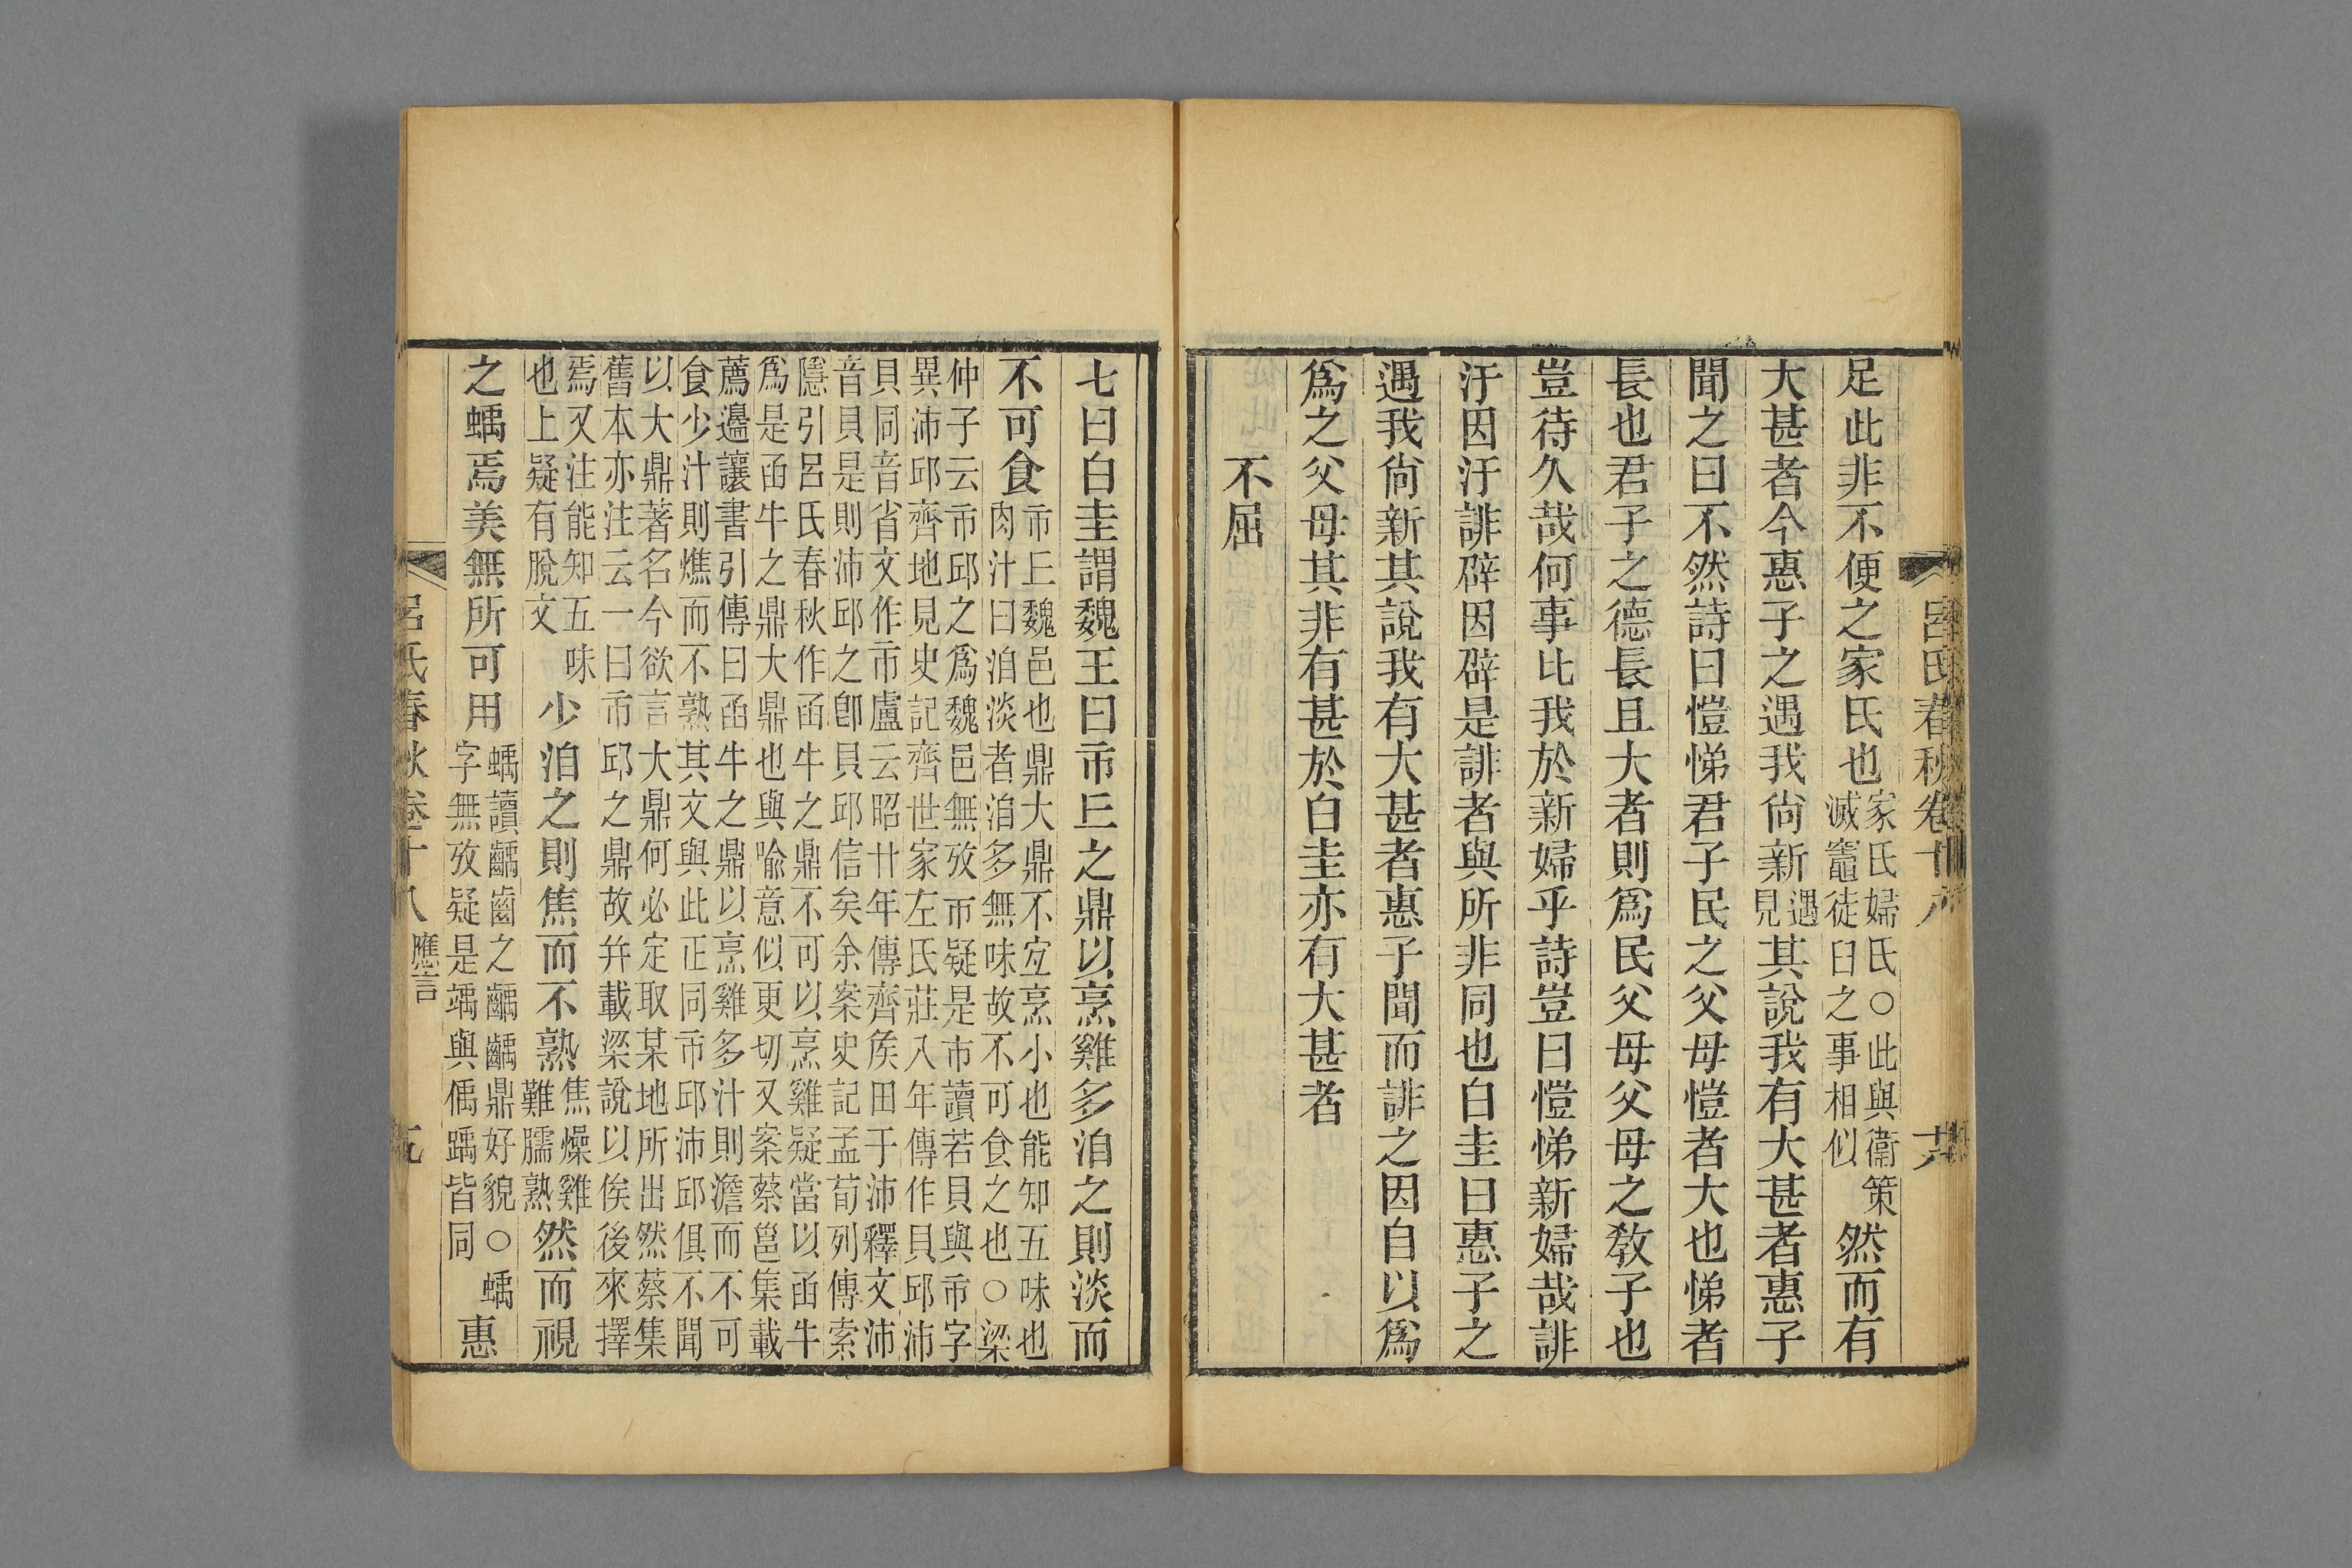 呂氏春秋卷十八 六
足此非不便之家氏也家氏婦氏○此與衞策滅竈徙臼之事相似然而有
大甚者今惠子之遇我尚新遇見其說我有大甚者惠子
聞之曰不然詩曰愷悌君子民之父母愷者大也悌者
長也君子之德長且大者則爲民父母父母之教子也
豈待久哉何事比我於新婦乎詩豈曰愷悌新婦哉誹
汙因汙誹辟因辟是誹者與所非同也白圭曰惠子之
遇我尚新其說我有大甚者惠子聞而誹之因自以爲
爲之父母其非有甚於白圭亦有大甚者
不屈
七曰白圭謂魏王曰市丘之鼎以烹雞多洎之則淡而
不可食市丘魏邑也鼎大鼎不宜烹小也能知五味也肉汁曰洎淡者洎多無味故不可食之也○梁
仲子云市邱之爲魏邑無攷市疑是巿讀若貝與市字異沛邱齊地見史記齊世家左氏莊八年傳作貝邱沛
貝同音省文作巿盧云昭廿年傳齊矦田于沛釋文沛音貝是則沛邱之卽貝邱信矣余案史記孟荀列傳索
隱引呂氏春秋作函牛之鼎不可以烹雞疑當以函牛爲是函牛之鼎大鼎也與喻意似更切又案蔡邕集載
薦邊讓書引傳曰函牛之鼎以烹雞多汁則澹而不可食少汁則燋而不熟其文與此正同市邱沛邱俱不聞
以大鼎著名今欲言大鼎何必定取某地所出然蔡集舊本亦注云一曰市邱之鼎故幷載梁說以俟後來擇
焉又注能知五味也上疑有脫文少洎之則焦而不熟焦燥雞難臑熟然而視
之蝺焉美無所可用蝺讀齲齒之齲齲鼎好貌○蝺字無攷疑是竬與偊踽皆同惠
呂氏春秋卷十八 應言 九